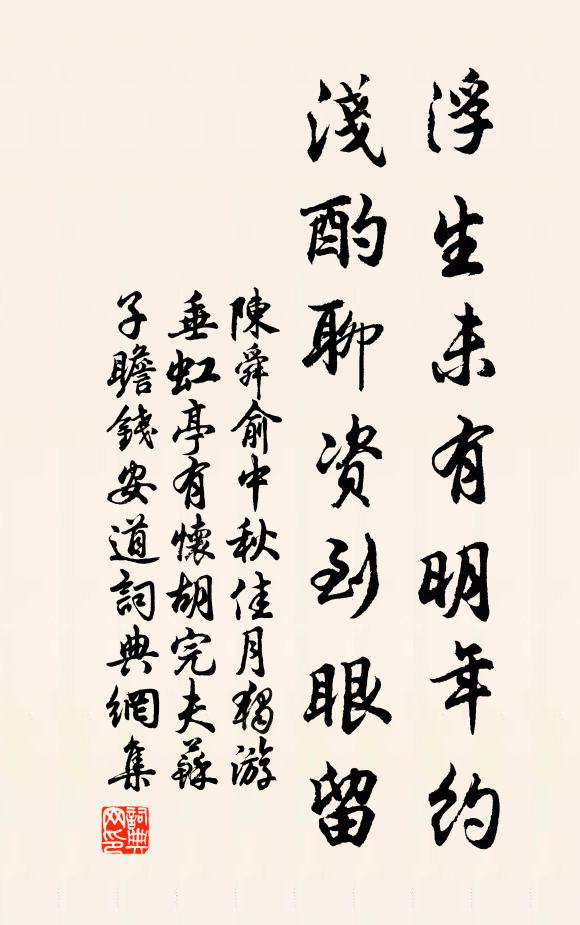 浮生未有明年約
淺酌聊資到眼留
陳舜俞中秋佳月獨游
垂虹亭有懷胡完夫蘇
子瞻錢安道詞典網集
詞典
网印